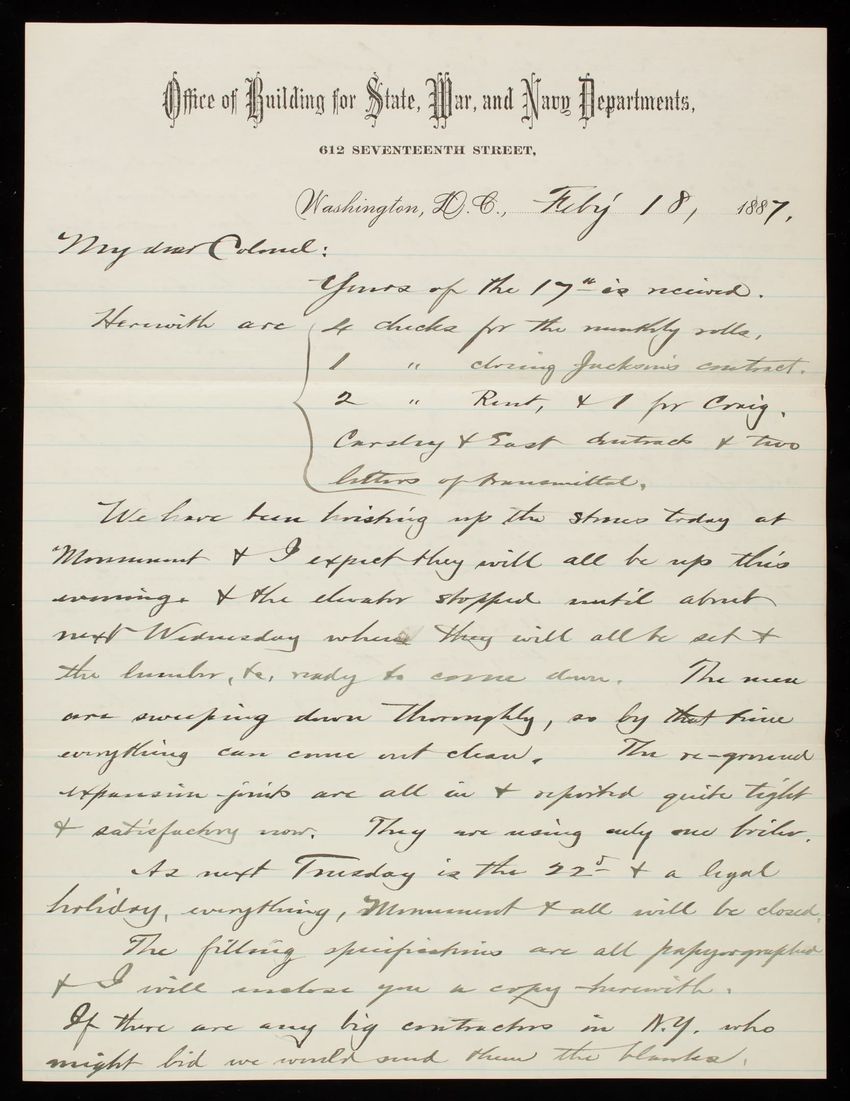 Office of Building for State, War, and Navy Departments,
612 SEVENTEENTH STREET,
Washington, D.C., Feb'y 18, 1887.
My dear Colonel:
Yours of the 17th is received.
Herewith are 4 checks for the monthly rolls,
1 " closing Jackson's contract.
2 " Rent, & 1 for Craig.
& East contracts & two
letters of transmittal.
We have been hoisting up the stones today at
Monument & I expect they will all be up this
evening. & the elevator stopped until about
next Wednesday when they will all be set &
the lumber, &c, ready to come down. The men
are sweeping down thoroughly, so by that time
everything can come out clean. The re-ground
expansion joints are all in & reported quite tight
& satisfactory now. They are using only one boiler.
As next Tuesday is the 22d & a legal
holiday, everything, Monument & all will be closed.
The filling specifications are all papyrographed
& I will enclose you a copy herewith.
If there are any big contractors in N.Y. who
might bid we would send them the blanks.